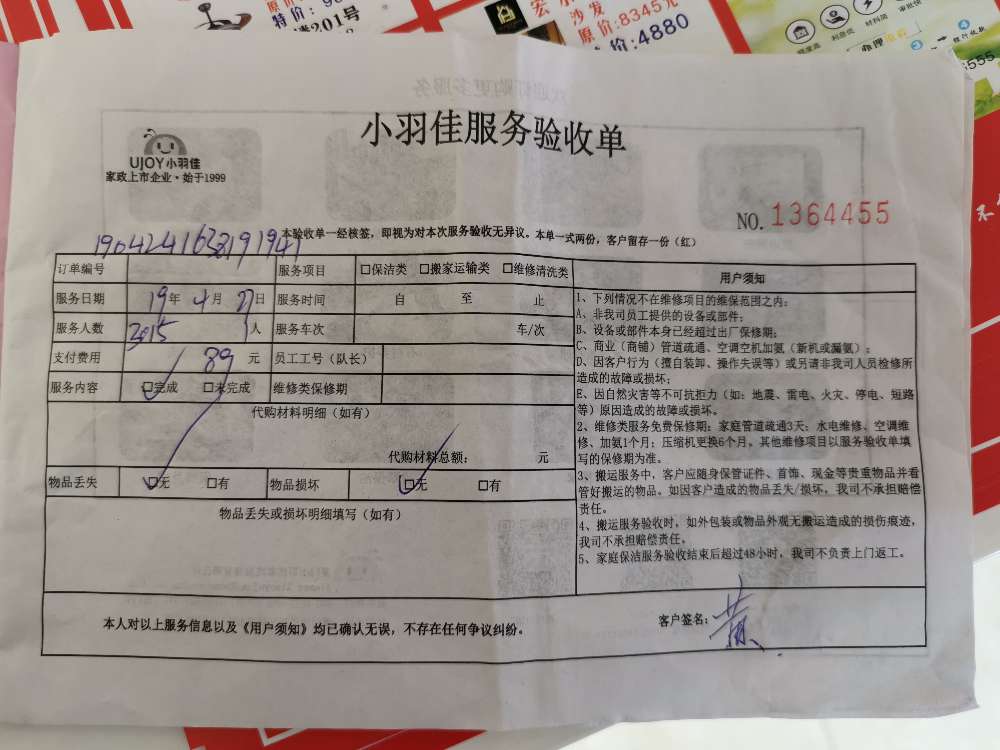 特价:
201号
沙发
原价:8345元
价:4880
办理
小羽佳服务验收单
UJOY小羽佳
家政上市企业·始于1999
NO. 1364455
本验收单一经核签，即视为对本次服务验收无异议。本单一式两份，客户留存一份（红）
订单编号
服务项目 □保洁类 □搬家运输类 □维修清洗类
服务日期 19年4月 日 服务时间 自 至 止
服务人数 人 服务车次 车/次
支付费用 89 元 员工工号（队长）
服务内容 □完成 □未完成 维修类保修期
代购材料明细（如有）
代购材料总额： 元
物品丢失 □无 □有 物品损坏 □无 □有
物品丢失或损坏明细填写（如有）
用户须知
1、下列情况不在维修项目的维保范围之内：
A、非我司员工提供的设备或部件；
B、设备或部件本身已经超过出厂保修期；
C、商业（商铺）管道疏通、空调空机加氨（新机或漏氨）；
D、因客户行为（擅自装卸、操作失误等）或另请非我司人员检修所
造成的故障或损坏；
E、因自然灾害等不可抗拒力（如：地震、雷电、火灾、停电、短路
等）原因造成的故障或损坏。
2、维修类服务免费保修期：家庭管道疏通3天；水电维修、空调维
修、加氨1个月；压缩机更换6个月。其他维修项目以服务验收单填
写的保修期为准。
3、搬运服务中，客户应随身保管证件、首饰、现金等贵重物品并看
管好搬运的物品。如因客户造成的物品丢失/损坏，我司不承担赔偿
责任。
4、搬运服务验收时，如外包装或物品外观无搬运造成的损伤痕迹，
我司不承担赔偿责任。
5、家庭保洁服务验收结束后超过48小时，我司不负责上门返工。
本人对以上服务信息以及《用户须知》均已确认无误，不存在任何争议纠纷。
客户签名：黄